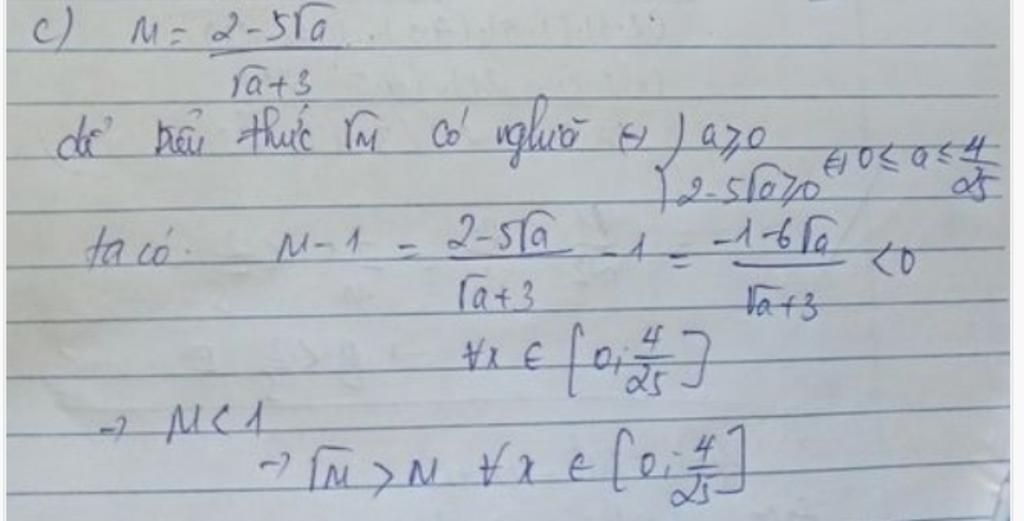 c) M = \frac{2-5\sqrt{a}}{\sqrt{a}+3}
để biểu thức \sqrt{M} có nghĩa ⇔ { a ≥ 0
2-5\sqrt{a} ≥ 0 ⇔ 0 ≤ a ≤ \frac{4}{25}
ta có. M - 1 = \frac{2-5\sqrt{a}}{\sqrt{a}+3} - 1 = \frac{-1-6\sqrt{a}}{\sqrt{a}+3} < 0
∀x ∈ [0; \frac{4}{25}]
→ M < 1
→ \sqrt{M} > M ∀x ∈ [0; \frac{4}{25}]